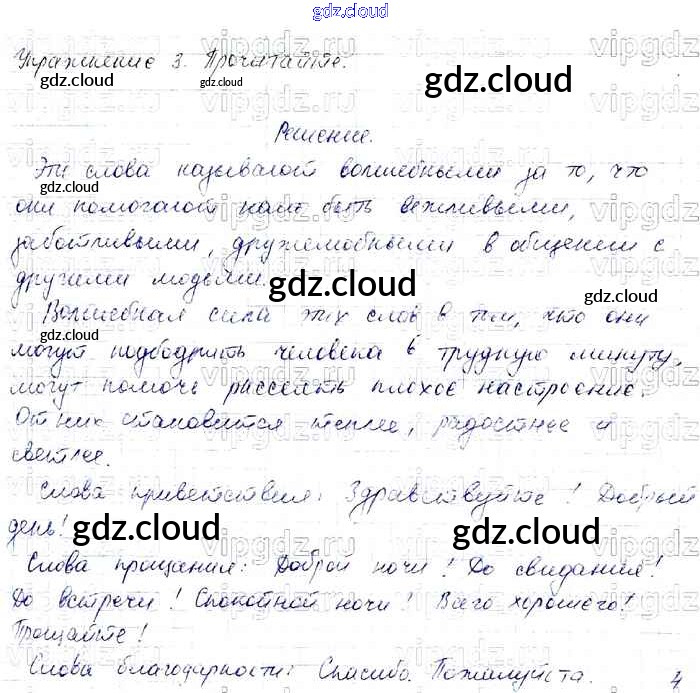 gdz.cloud
Упражнение 3. Прочитайте.
gdz.cloud gdz.cloud gdz.cloud
Решение.
Эти слова называют волшебными за то, что
gdz.cloud
они помогают нам быть вежливыми,
заботливыми, дружелюбными в общении с
gdz.cloud
другими людьми.
gdz.cloud gdz.cloud
Волшебная сила этих слов в том, что они
могут подбодрить человека в трудную минуту,
могут помочь рассеять плохое настроение.
От них становится теплее, радостнее и
светлее.
Слова приветствия: Здравствуйте! Добрый
день!
gdz.cloud gdz.cloud
Слова прощания: Доброй ночи! До свидания!
До встречи! Спокойной ночи! Всего хорошего!
Прощайте!
Слова благодарности: Спасибо. Пожалуйста.
4